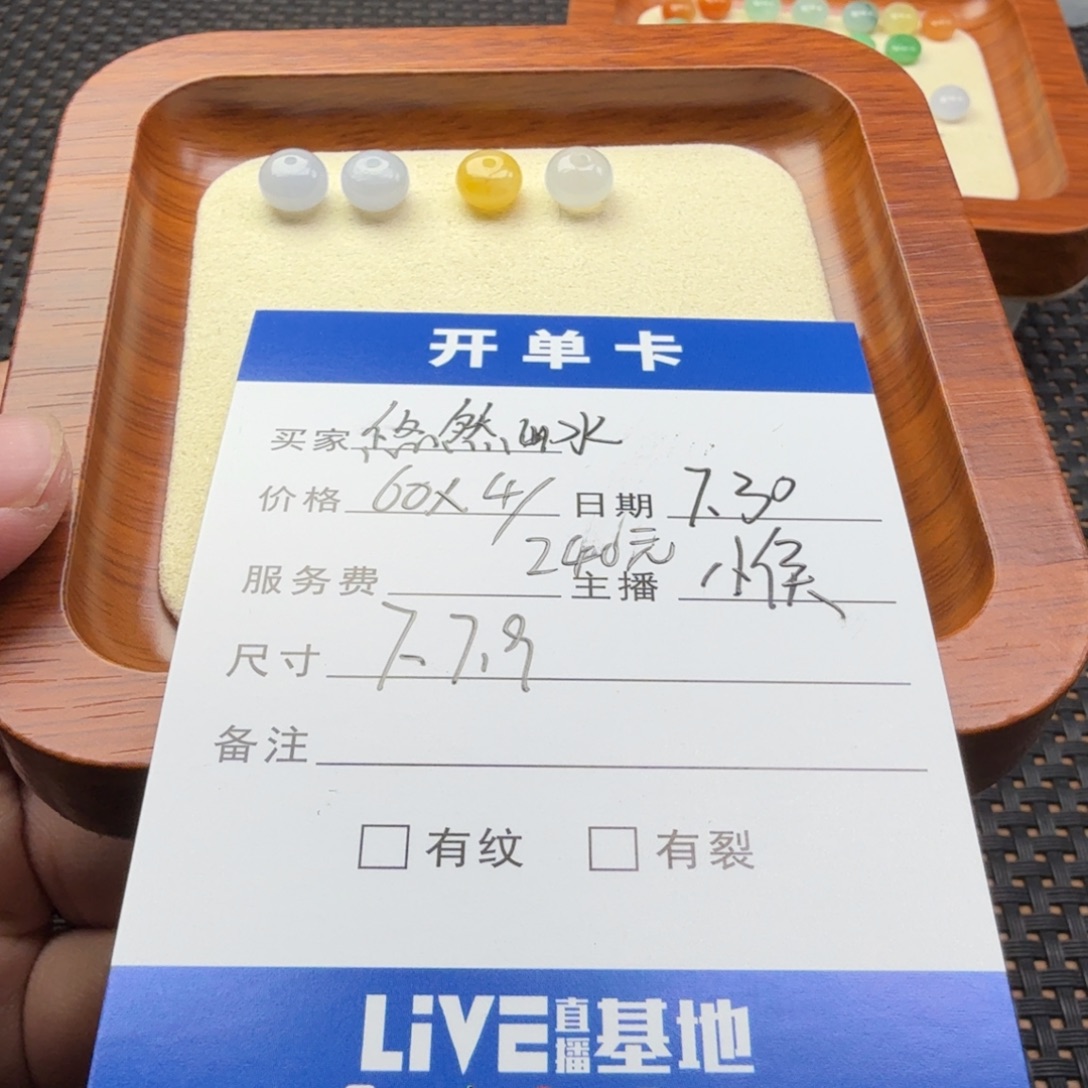 开单卡
买家 悠然山水
价格 60X4/ 日期 7.30
240元
服务费 主播 小侯
尺寸 7.7.9
备注
有纹 有裂
LiVE直播基地